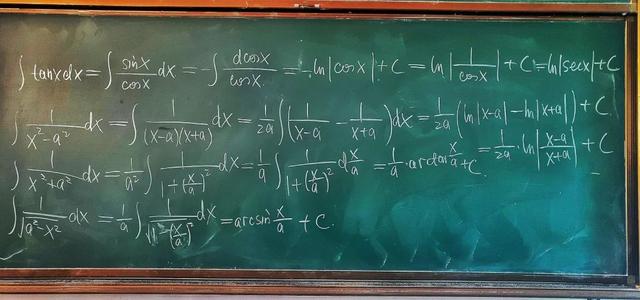 ∫ tanxdx = ∫ sinx/cosx dx = -∫ dcosx/cosx = -ln|cosx| + C = ln|1/cosx| + C = ln|secx| + C
∫ 1/(x²-a²) dx = ∫ 1/((x-a)(x+a)) dx = 1/2a ∫ (1/(x-a) - 1/(x+a)) dx = 1/2a (ln|x-a| - ln|x+a|) + C
= 1/2a · ln|(x-a)/(x+a)| + C
∫ 1/(x²+a²) dx = 1/a² ∫ 1/(1+(x/a)²) dx = 1/a ∫ 1/(1+(x/a)²) d x/a = 1/a · arctan x/a + C
∫ 1/√(a²-x²) dx = 1/a ∫ 1/√(1-(x/a)²) dx = arcsin x/a + C